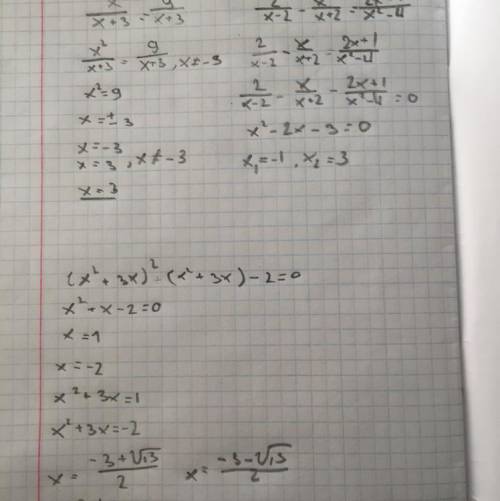 x/x+3 = 9/x+3
x²/x+3 = 9/x+3, x≠-3
x²=9
x=±3
x=-3
x=3, x≠-3
x=3
2/x-2 - x/x+2 = 2x+1/x²-4
2/x-2 - x/x+2 = 2x+1/x²-4
2/x-2 - x/x+2 - 2x+1/x²-4 = 0
x²-2x-3=0
x₁=-1, x₂=3
(x²+3x)² - (x²+3x) - 2=0
x²+x-2=0
x=1
x=-2
x²+3x=1
x²+3x=-2
x= -3+√13/2 x= -3-√13/2